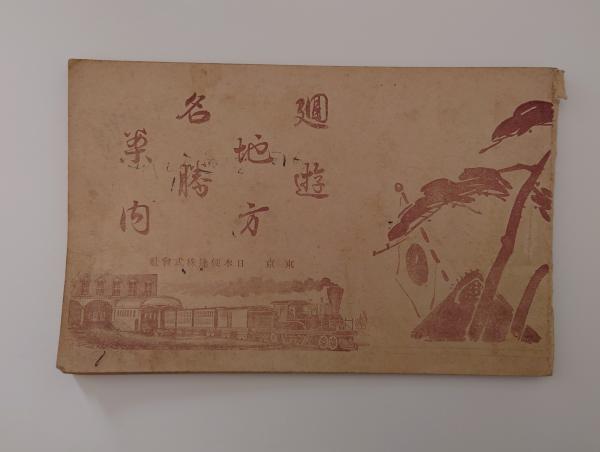 廻遊
地方
名勝
案内
東京 日本 株式會社